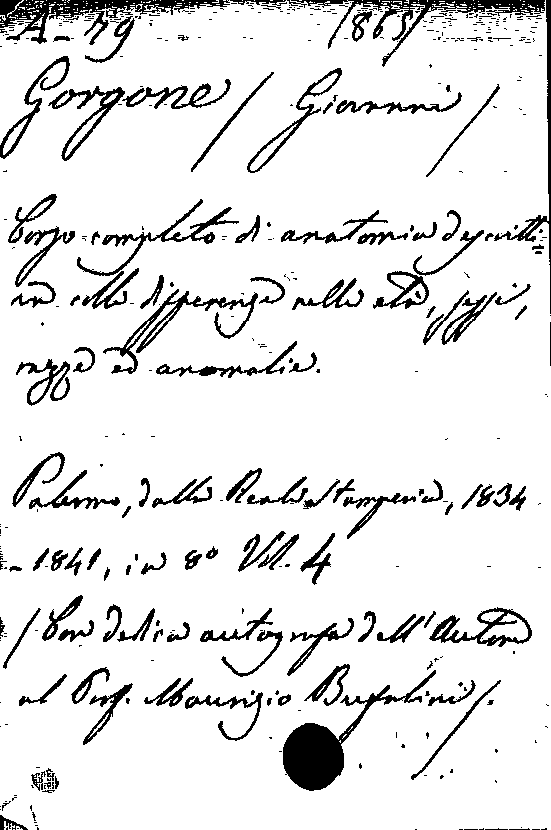 A-79 /865/
Gorgone / Giovanni /
Corso completo di anatomia descritti=
va colle differenze nelle età, sessi,
razze ed anomalie.
Palermo, dalla Reale Stamperia, 1834
-1841, in 8° Vol. 4
/ Con dedica autografa dell'Autore
al Prof. Maurizio Bufalini /.